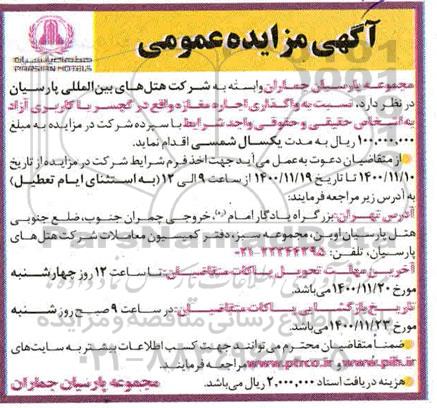 آگهی مزایده عمومی
هتلهای پارسیان
PARSIAN HOTELS
مجموعه پارسیان جماران وابسته به شرکت هتل های بین‌المللی پارسیان
در نظر دارد، نسبت به واگذاری اجاره مغازه واقع در گچسر با کاربری آزاد
به اشخاص حقیقی و حقوقی واجد شرایط با سپرده شرکت در مزایده به مبلغ
۱۰۰,۰۰۰,۰۰۰ ریال به مدت یکسال شمسی اقدام نماید.
• از متقاضیان دعوت به عمل می آید جهت اخذ فرم شرایط شرکت در مزایده از تاریخ
۱۴۰۰/۱۱/۱۰ تا تاریخ ۱۴۰۰/۱۱/۱۹ از ساعت ۹ الی ۱۲ (به استثنای ایام تعطیل)
به آدرس زیر مراجعه فرمایند:
آدرس تهران: بزرگراه یادگار امام (ره)، خروجی چمران جنوب، ضلع جنوبی
هتل پارسیان اوین، مجموعه سبز، دفتر کمیسیون معاملات شرکت هتل های
پارسیان، تلفن:
آخرین مهلت تحویل پاکات متقاضیان: تا ساعت ۱۲ روز چهارشنبه
مورخ ۱۴۰۰/۱۱/۲۰ می‌باشد.
تاریخ بازگشایی پاکات متقاضیان: در ساعت ۹ صبح روز شنبه
مورخ ۱۴۰۰/۱۱/۲۳ می‌باشد.
• ضمناً متقاضیان محترم می توانند جهت کسب اطلاعات بیشتر به سایت‌های
www.pih.ir و www.ptrco.ir مراجعه فرمایند.
• هزینه دریافت اسناد ۲,۰۰۰,۰۰۰ ریال می‌باشد.
مجموعه پارسیان جماران